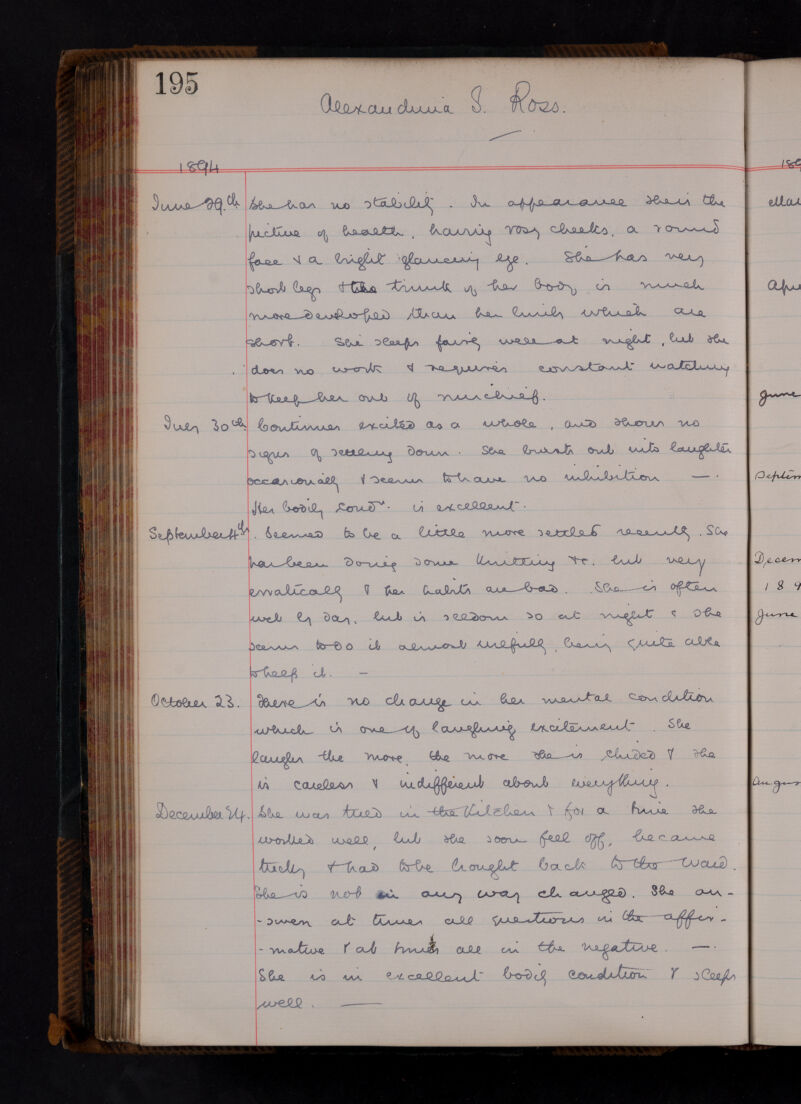 195
Alexandrina S. Ross.
1894
June 29.th She has no stability. In appearance she is the
picture of health, having rosy cheeks, a round
face & a bright glancing eye. She has very
short legs & the trunk of her body is much
more developed than her limbs which are
short. She sleeps fairly well at night, but she
does no work & requires constant watching
to keep her out of mischief.
July 30th Continues excited as a whole, and shows no
signs of settling down. She bursts out into laughter
occasionally & seems to have no inhibition —.
Her bodily condn. is excellent.
September 4th. Seemed to be a little more settled recently. She
has been doing some knitting &c. but very
erratically & her habits are bad. She is often
wet by day, but is seldom so at night & she
seems to do it almost wilfully, being quite able
to help it. —
October 23. There is no change in her mental condition
which is one of laughing excitement. She
laughs the more, the more she is chided & she
is careless & indifferent about everything.
December 24. She was tried in the kitchen & for a time she
worked well, but she soon feel off, became
tricky & had to be brought back to the ward.
She is not in any way changed. She an-
-swers at times all questions in the affir-
-mative & at times all in the negative. —.
She is in excellent bodily condition & sleeps
well. —
189
Mar
Apri
June
Septem
Decem
189
June
Augus